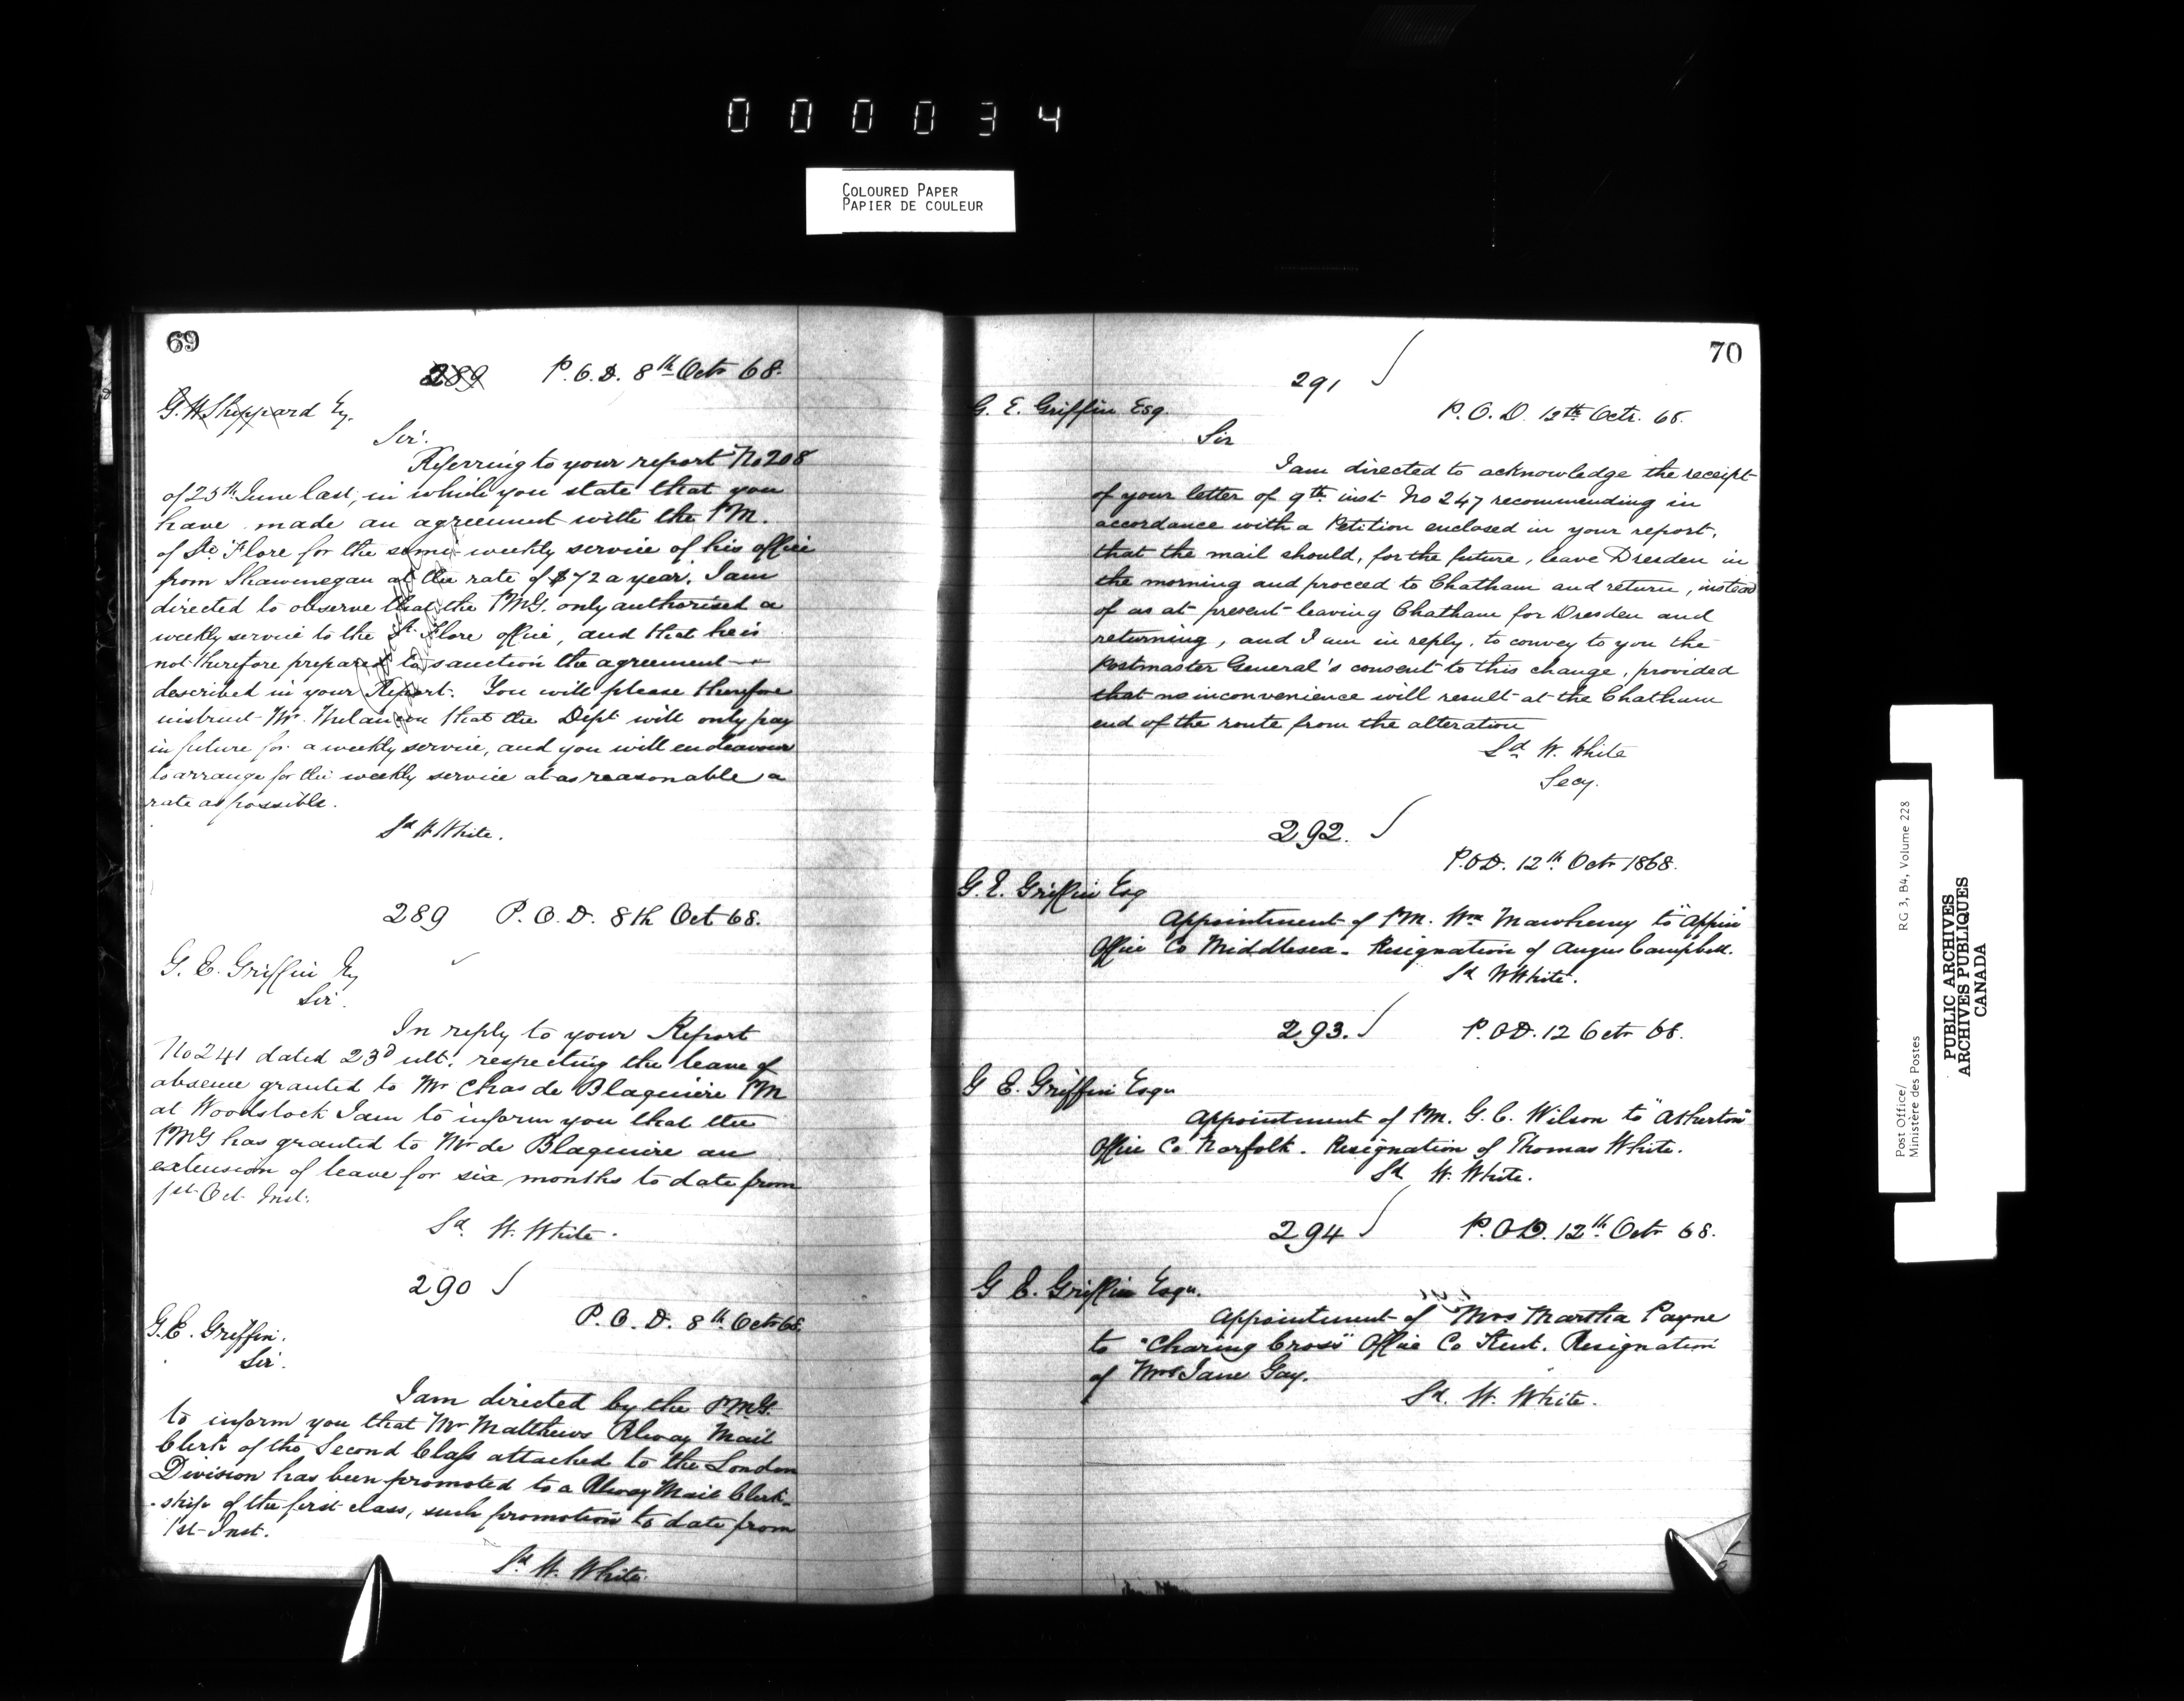 000034
COLOURED PAPER
PAPIER DE COULEUR
69
289 P.O.D. 8th Octr 68.
G. W. Sheppard Esq.
Sir.
Referring to your report No 208
of 25th June last, in which you state that you
have made an agreement with the P.M.
of Ste Flore for the semi-weekly service of his office
from Shawenegan at the rate of $72 a year. I am
directed to observe that the PMG. only authorised a
weekly service to the St. Flore office, and that he is
not therefore prepared to sanction the agreement
described in your Report. You will please therefore
instruct Mr. that the Dept will only pay
in future for a weekly service, and you will endeavour
to arrange for the weekly service at as reasonable a
rate as possible.
Sd W White.
289 P.O.D. 8th Oct 68.
G. E. Griffin Esq
Sir.
In reply to your Report
No 241 dated 23d ult. respecting the leave of
absence granted to Mr Chas de Blaquière PM
at Woodstock I am to inform you that the
PMG has granted to Mr de Blaquiere an
extension of leave for six months to date from
1st Oct Inst.
Sd. W. White.
290
P.O.D. 8th Octr 68.
G.E. Griffin.
Sir.
I am directed by the P.M.G.
to inform you that Mr Matthews Rlway Mail
Clerk of the Second Class attached to the London
Division has been promoted to a Rlway Mail Clerk-
-ship of the first class, such promotion to date from
1st Inst.
Sd. W. White.
70
291
G. E. Griffin Esq.
P.O.D. 12th Octr. 68.
Sir
I am directed to acknowledge the receipt
of your letter of 9th inst No 247 recommending in
accordance with a Petition enclosed in your report,
that the mail should, for the future, leave Dresden in
the morning and proceed to Chatham and return, instead
of as at present leaving Chatham for Dresden and
returning, and I am in reply, to convey to you the
Postmaster General's consent to this change, provided
that no inconvenience will result at the Chatham
end of the route from the alteration
Sd W. White
Secy.
292.
P.O.D. 12th Octr 1868.
G. E. Griffin Esq
Appointment of P.M. Wm Mawhenny to "Appin"
Office Co Middlesex. Resignation of Angus Campbell.
Sd W White.
293. P.O.D. 12 Octr 68.
G E. Griffin Esqr
Appointment of P.M. G. C. Wilson to "Atherton"
Office Co Norfolk. Resignation of Thomas White.
Sd W. White.
294 P.O.D. 12th Octr 68.
G E. Griffin Esqr.
Appointment of Mrs Martha Payne
to "Charing Cross" Office Co Kent. Resignation
of Mrs Jane Gay.
Sd. W. White.
Post Office/ RG 3, B4, Volume 228
Ministère des Postes
PUBLIC ARCHIVES
ARCHIVES PUBLIQUES
CANADA